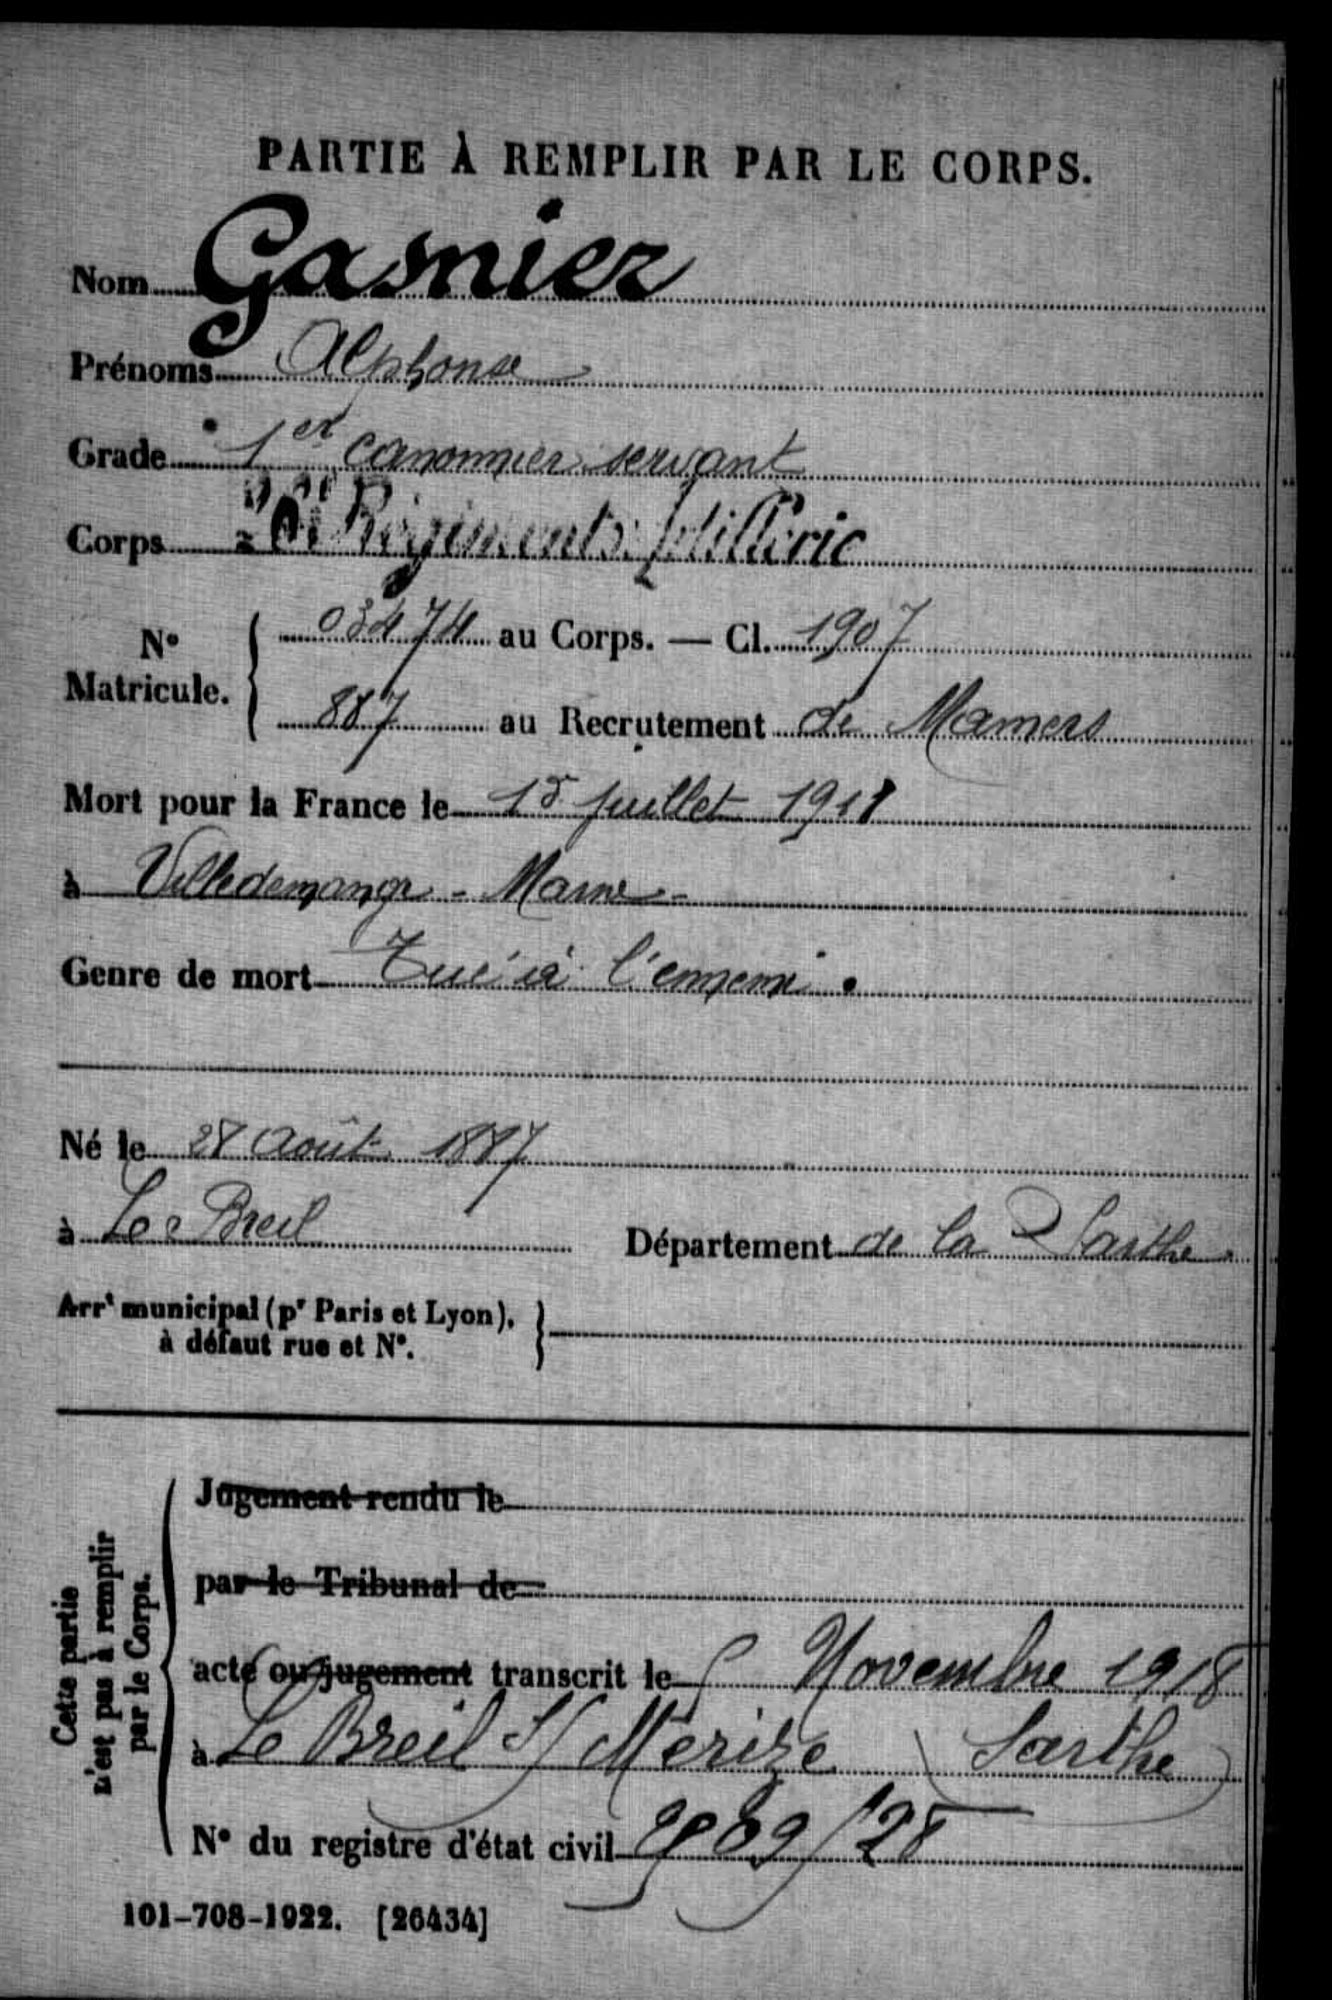 PARTIE À REMPLIR PAR LE CORPS.
Nom Gasnier
Prénoms Alphonse
Grade 1er canonnier servant
Corps Régiment d'Artillerie
N° Matricule. 03474 au Corps. — Cl. 1907
887 au Recrutement de Mamers
Mort pour la France le 15 juillet 1918
à Villedemange - Marne -
Genre de mort Tué à l'ennemi.
Né le 28 Août 1887
à Le Breil Département de la Sarthe
Arrt municipal (pr Paris et Lyon),
à défaut rue et N°.
Cette partie
n'est pas à remplir
par le Corps.
Jugement rendu le
par le Tribunal de
acte ou jugement transcrit le Novembre 1918
à Le Breil S/ Mérize (Sarthe)
N° du registre d'état civil
101-708-1922. [26434]